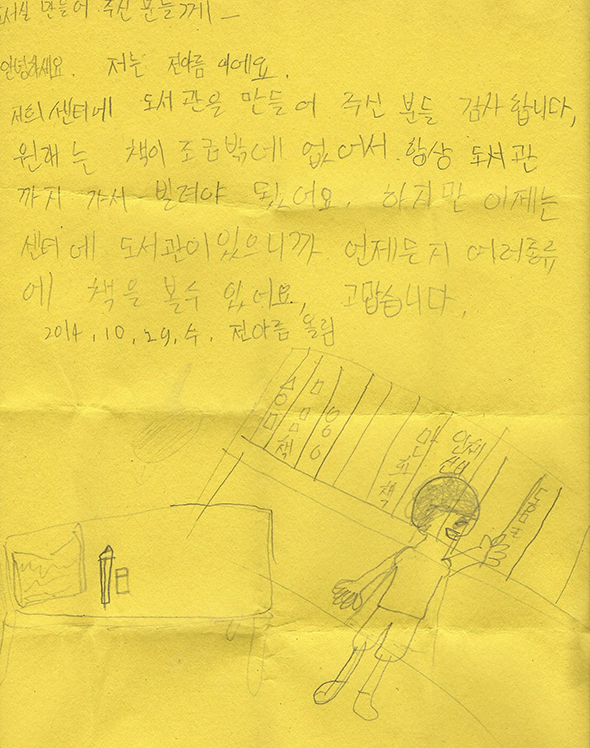 도서실 만들어 주신 분들께!
안녕하세요. 저는 전아름 이에요.
저희 센터에 도서관을 만들어 주신 분들 감사합니다.
원래는 책이 조금밖에 없어서 항상 도서관
까지 가서 빌려야 됬어요. 하지만 이제는
센터에 도서관이 있으니까 언제든지 여러종류
에 책을 볼수 있어요. 고맙습니다.
2014. 10. 29. 수. 전아름 올림
만화책